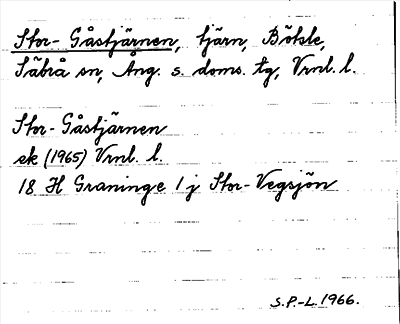 Stor-Gåstjärnen, tjärn, Bölsle,
Säbrå sn, Ång. s. doms. tg, Vrnl. l.
Stor-Gåstjärnen
ek (1965) Vrnl. l.
18 H Graninge 1 j Stor-Vegsjön
S.P.-L. 1966.